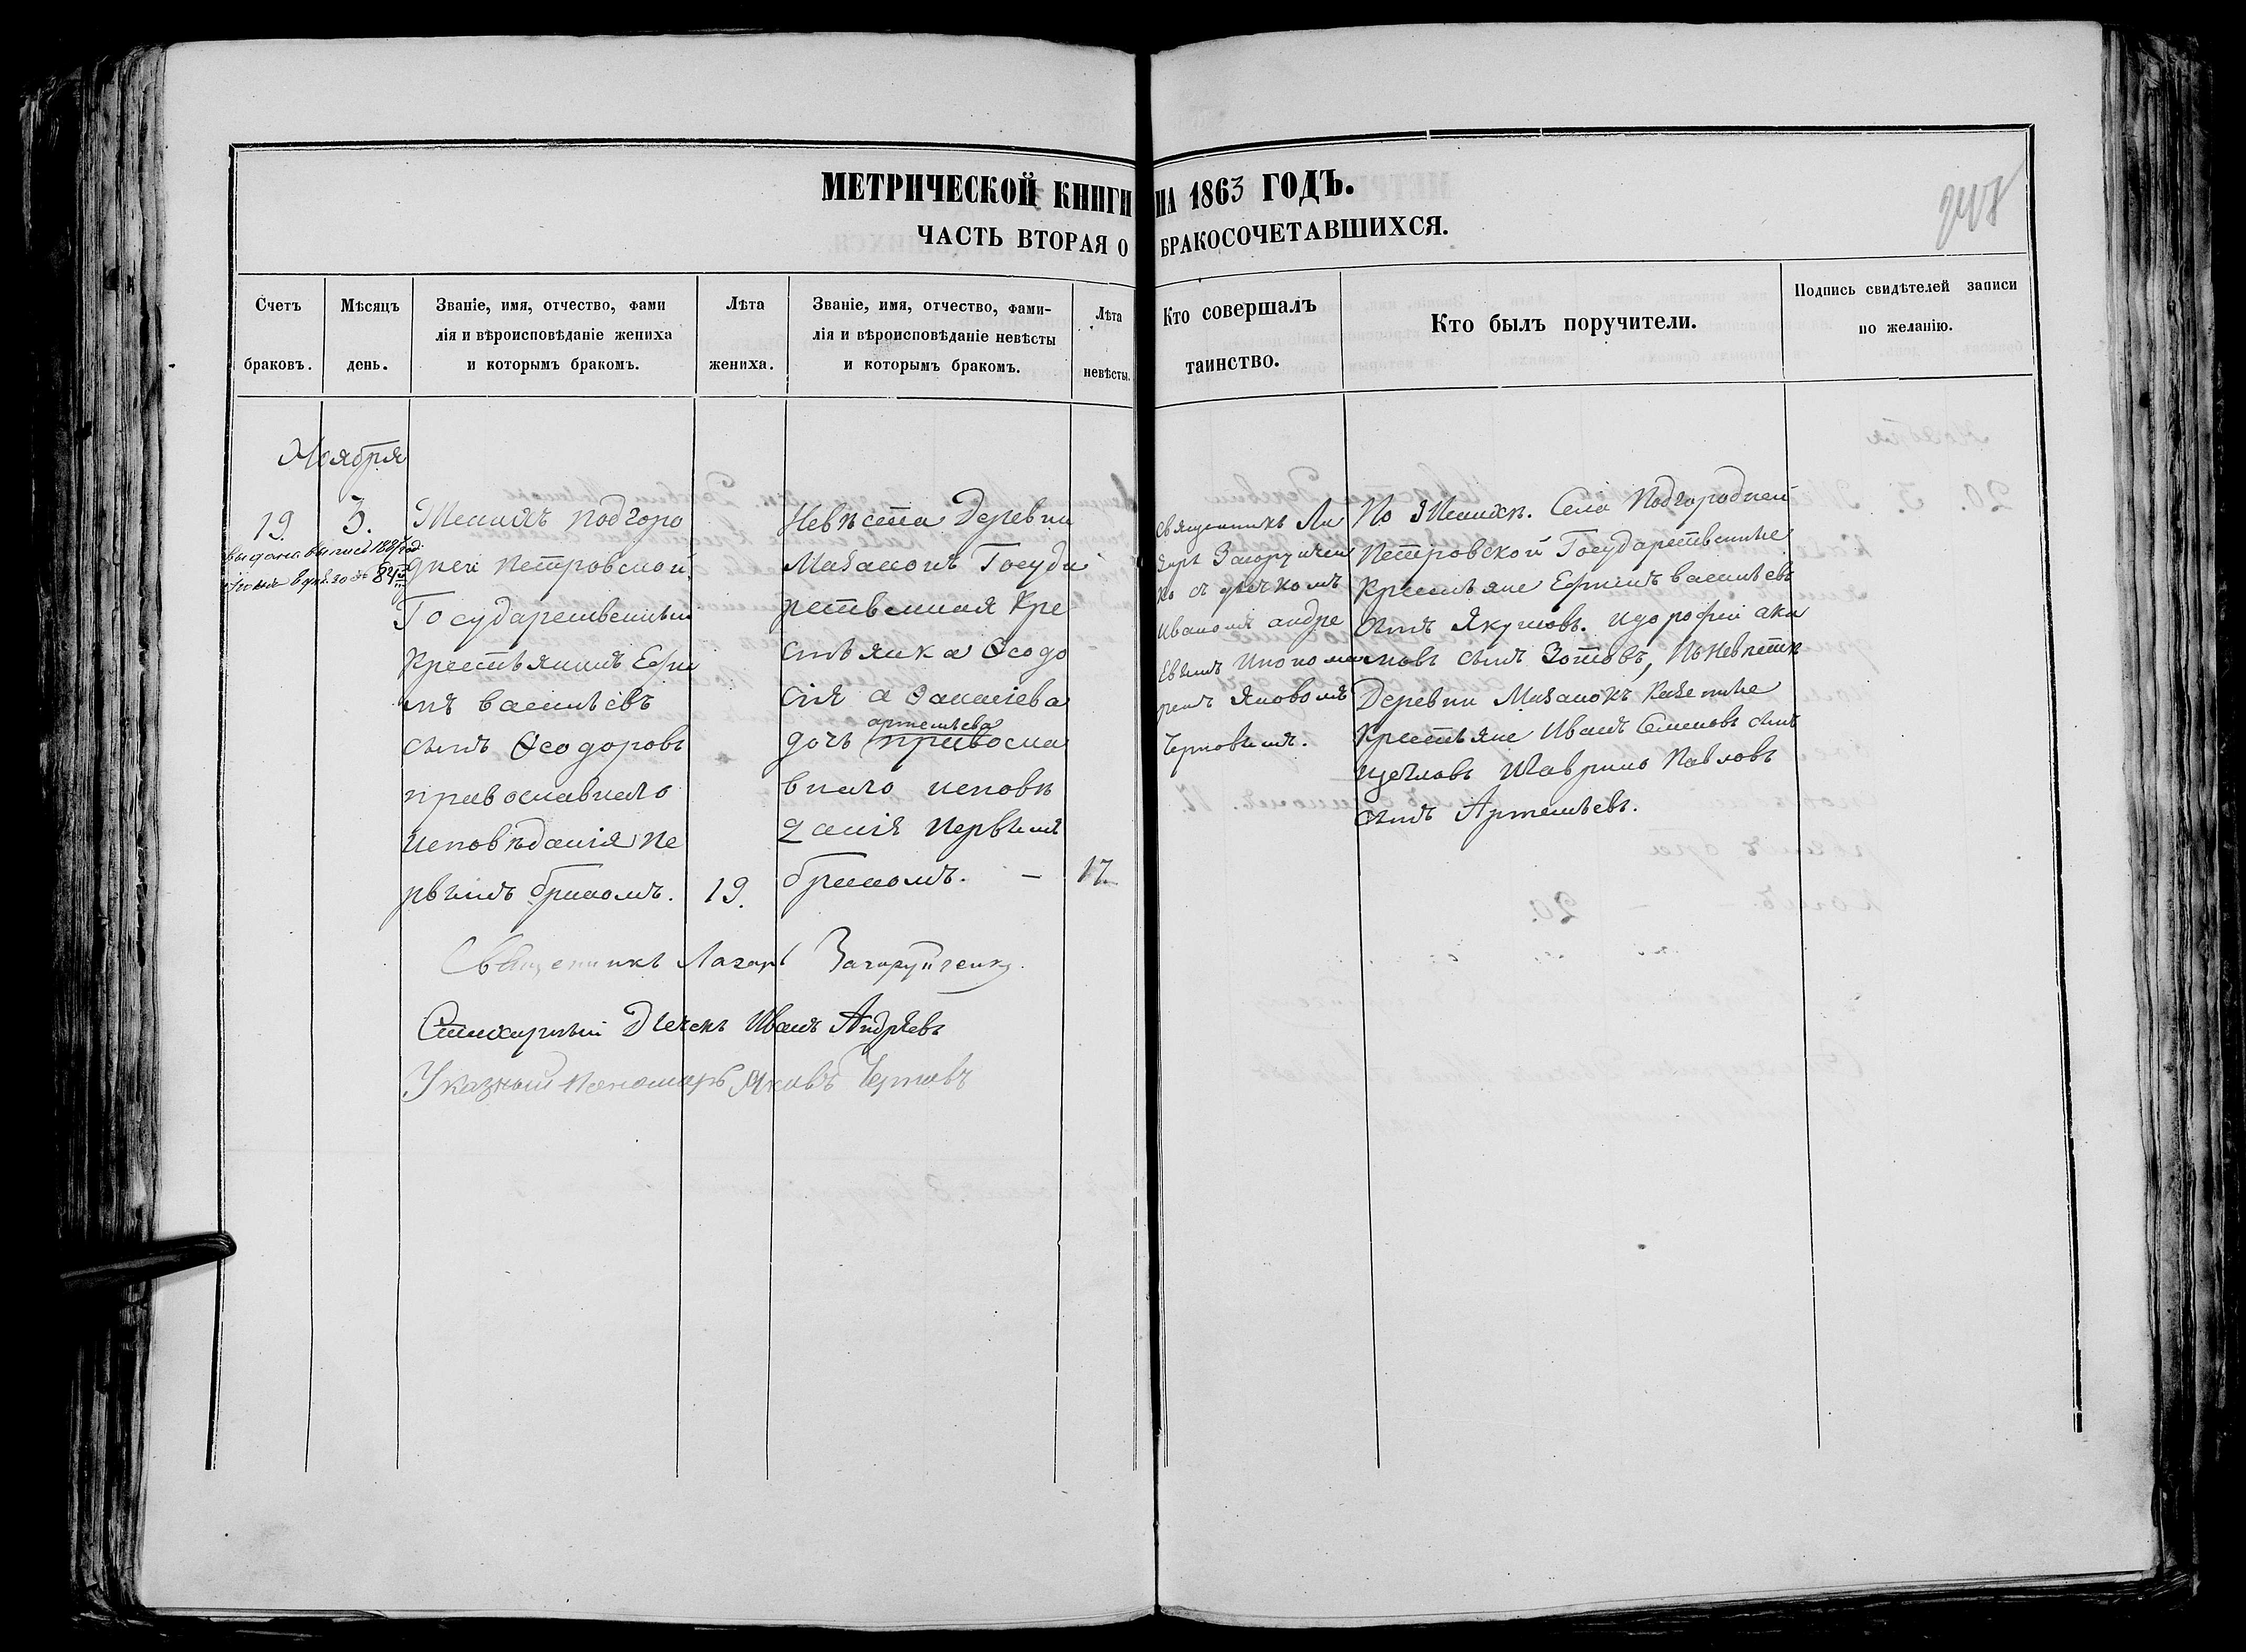 МЕТРИЧЕСКОЙ КНИГИ НА 1863 ГОДЪ.
ЧАСТЬ ВТОРАЯ О БРАКОСОЧЕТАВШИХСЯ.
248
Счетъ
браковъ.
Мѣсяцъ
день.
Званіе, имя, отчество, фами
лія и вѣроисповѣданіе жениха
и которымъ бракомъ.
Лѣта
жениха.
Званіе, имя, отчество, фами-
лія и вѣроисповѣданіе невѣсты
и которымъ бракомъ.
Лѣта
невѣсты.
Кто совершалъ
таинство.
Кто былъ поручители.
Подпись свидѣтелей записи
по желанію.
Ноября
19.
3.
выдана выпись 188 год.
84
Женихъ Подгоро
дней Петровской
Государственный
Крестьянинъ Ефи
мъ васильевъ
сынъ Ѳеодоровъ
православнаго
исповѣданія пе
рвымъ бракомъ.
19.
Невѣста Деревни
Мазанокъ Госуда
рственная Кре
стьянка Ѳеодо
сія аѳанасіева
артемьева
дочь православ
внаго исповѣ
данія первымъ
бракомъ. —
17.
Священникъ Ла
зарь Загоруйчен
ко съ дячкомъ
Иваномъ андре
евымъ и понома
ремъ Яковомъ
Чертовымъ.
По Женихѣ. Села Подгородней
Петровской Государственные
Крестьяне Ефимъ васильевъ
сынъ Якунов. и дорофей ака
повъ сынъ Зотовъ, По Невѣстѣ
Деревни Мазанокъ Казенные
Крестьяне Иванъ Семеновъ сынъ
щегловъ и Гаврило Павловъ
сынъ Артемьевъ.
Священникъ Лазарь Загоруйченко
Стихарный Дьячекъ Иванъ Андреевъ
Указный Пономарь Яковъ Чертовъ